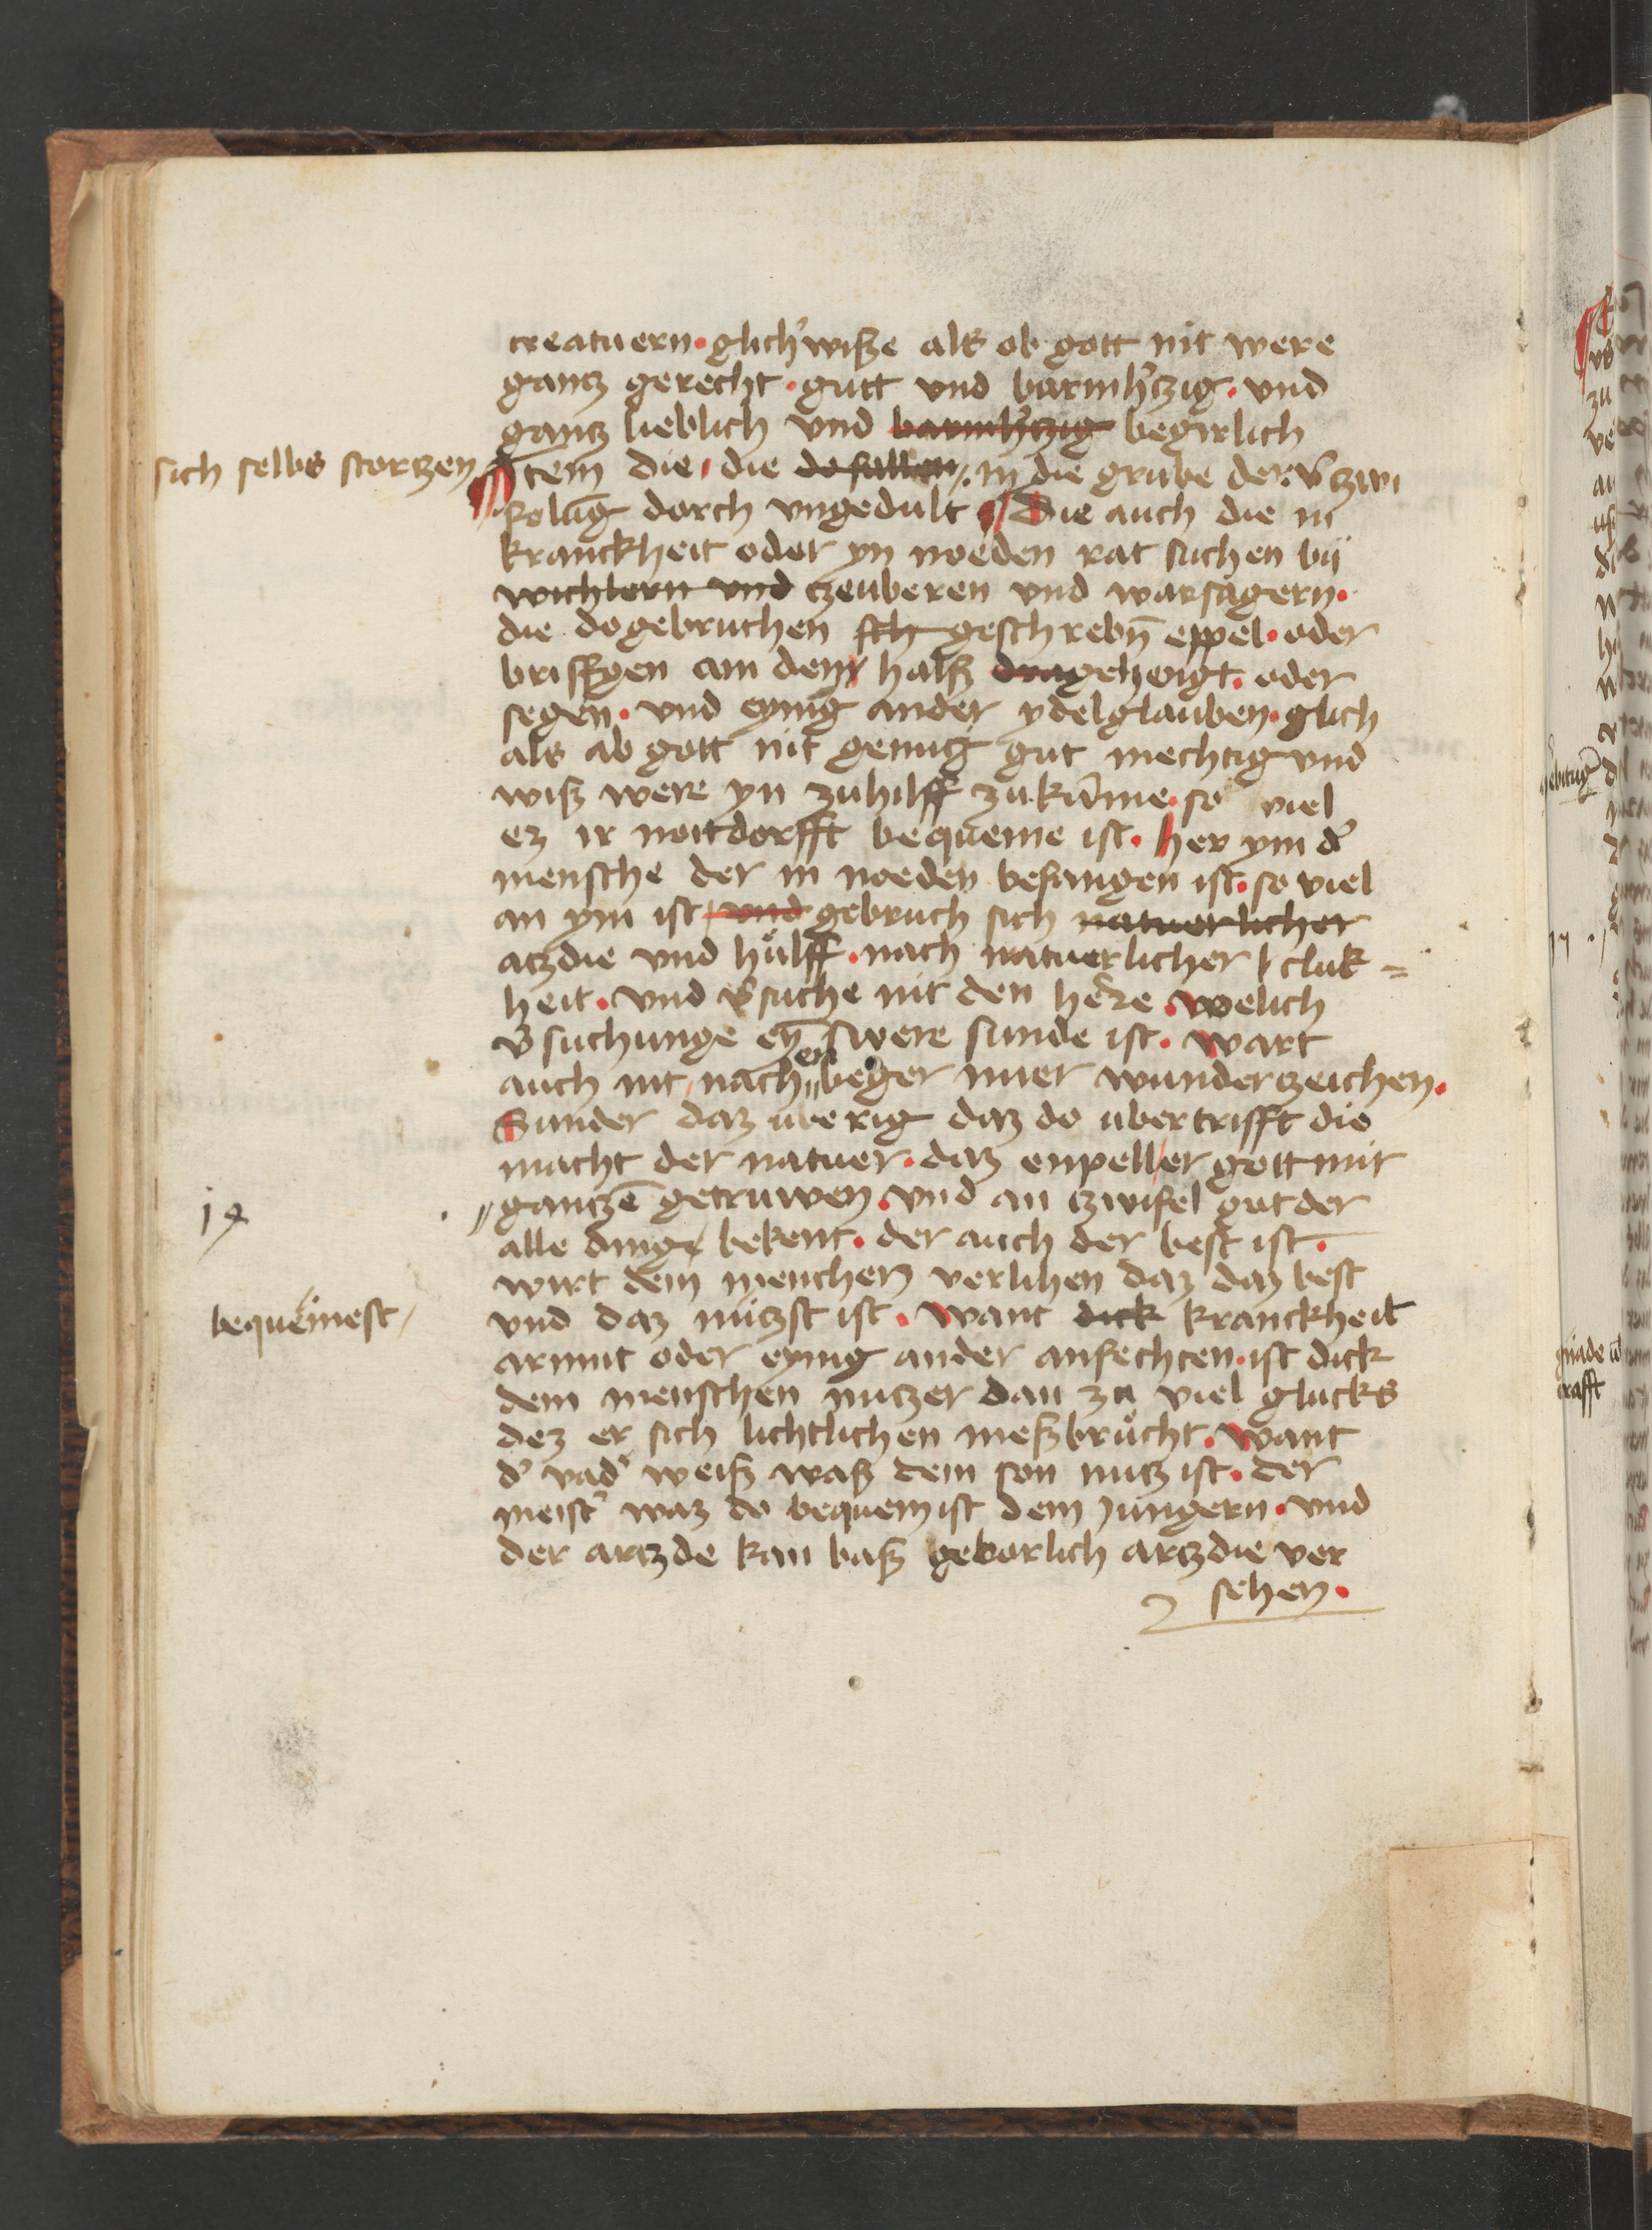 creatuern · glich'wiße als ob gott nit were
gantz gerecht · gutt vnd barmh'tzig · vnd
gantz lieblich vnd barmh'tzig begirlich
sich selbs stortzen
Item die / die do fallen /. in die grube der v̄zwi
felūg dorch vngedult Die auch die in
kranckheit oder yn noeden rat suchen bÿ
wichlern vnd czeuberen vnd warsagern ·
die do gebruchen sch geschrebn̄ eppel · oder
briffgen am dem halß gehengt · oder
segen · vnd eynig ander ydelglauben · glich
als ab gott nit genug gut mechtig vnd
wiß were yn zuhilff zu kūme · so viel
ez ir noitdorfft bequeme ist · her ym d'
mensche der in noeden befangen ist · so viel
an ym ist / vnd gebruch sich natuerlicher
atzdie vnd hülff · nach natuerlicher cluk=
heit · vnd v̄suche nit den here · welich
v̄suchunge eyn̄ swere sunde ist · wart
auch nit nach en beger nuer wunderzeichen ·
Sunder daz uberig daz do ubertrifft die
macht der natuer · daz enpell er gott mit
14
gantzē getruwen · vnd an tzwifel gut der
alle dinge bekent · der auch der best ist ·
wirt dem menchen verlihen daz daz best
bequemest /
vnd daz nutzst ist · want dick kranckheit
armut oder eynig ander anfechten · ist dick
dem menschen nutzer dan zu viel glucks
dez er sich lichtlichen meßbrucht · want
d' vad' weiß waß dem son nutz ist · der
meist' waz do bequem ist dem jungern · vnd
der artzde kan baß geborlich artzdie ver
sehen ·